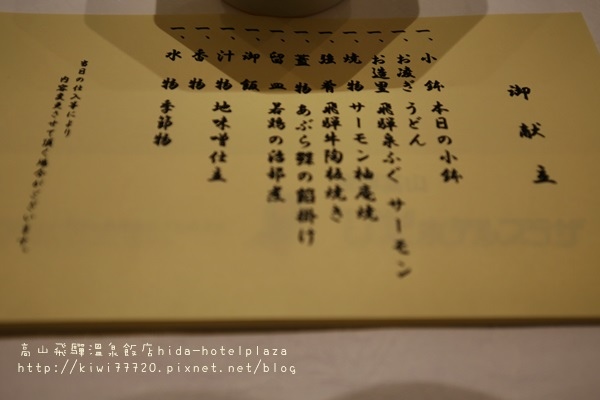 御献立
一、小鉢 本日の小鉢
一、お凌ぎ うどん
一、お造里 飛騨泉ふぐ サーモン
一、焼物 サーモン柚庵焼
一、強肴 飛騨牛陶板焼き
一、蓋物 あぶら鰈の餡掛け
一、留皿 若鶏の治部煮
一、御飯
一、汁物 地味噌仕立
一、香物
一、水物 季節物
当日の仕入事により
内容変更させて頂く場合がございます。
高山飛驒溫泉飯店hida-hotelplaza
http://kiwi77720.pixnet.net/blog